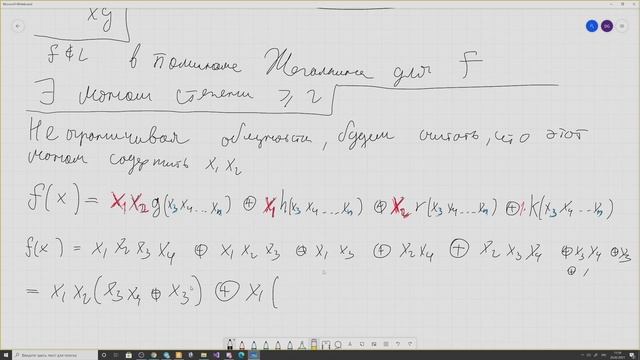 Microsoft Whiteboard
xy
f ∉ L в полиноме Жегалкина для f
∃ моном степени ⩾ 2
Не ограничивая общности, будем считать, что этот
моном содержит x₁ x₂
f(x) = x₁x₂ g(x₃ x₄ … xₙ) ⊕ x₁ h(x₃ x₄ … xₙ) ⊕ x₂ r(x₃ x₄ … xₙ) ⊕ 1·k(x₃ x₄ … xₙ)
f(x) = x₁ x₂ x₃ x₄ ⊕ x₁ x₂ x₃ ⊕ x₁ x₃ ⊕ x₂x₄ ⊕ x₂ x₃ x₄ ⊕ x₃x₄ ⊕ x₃
⊕ 1
= x₁ x₂ (x₃ x₄ ⊕ x₃) ⊕ x₁ (
Введите здесь текст для поиска